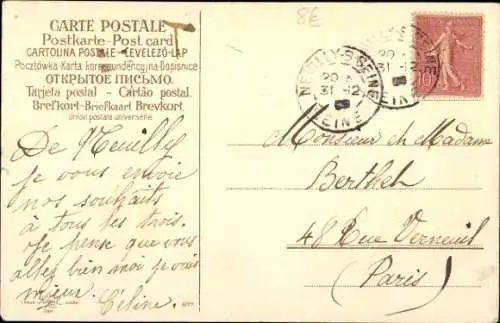 CARTE POSTALE
Postkarte-Post card
CARTOLINA POSTALE-LEVELEZŐ-LAP
Pocztówka-Karta korespondencyjna-Dopisnice
ОТКРЫТОЕ ПИСЬМО.
Tarjeta postal - Cartão postal.
Brefkort-Briefkaart Brevkort.
Union postale universelle.
T
8€
NEUILLY-S-SEINE
20
31-12
SEINE
20
31-12
SEINE
10
De Neuilly
je vous envoie
nos souhaits
à tous les trois.
Je pense que vous
allez bien moi je vais
mieux.
Céline.
Monsieur et Madame
Berthet
48 Rue Verneuil
(Paris)